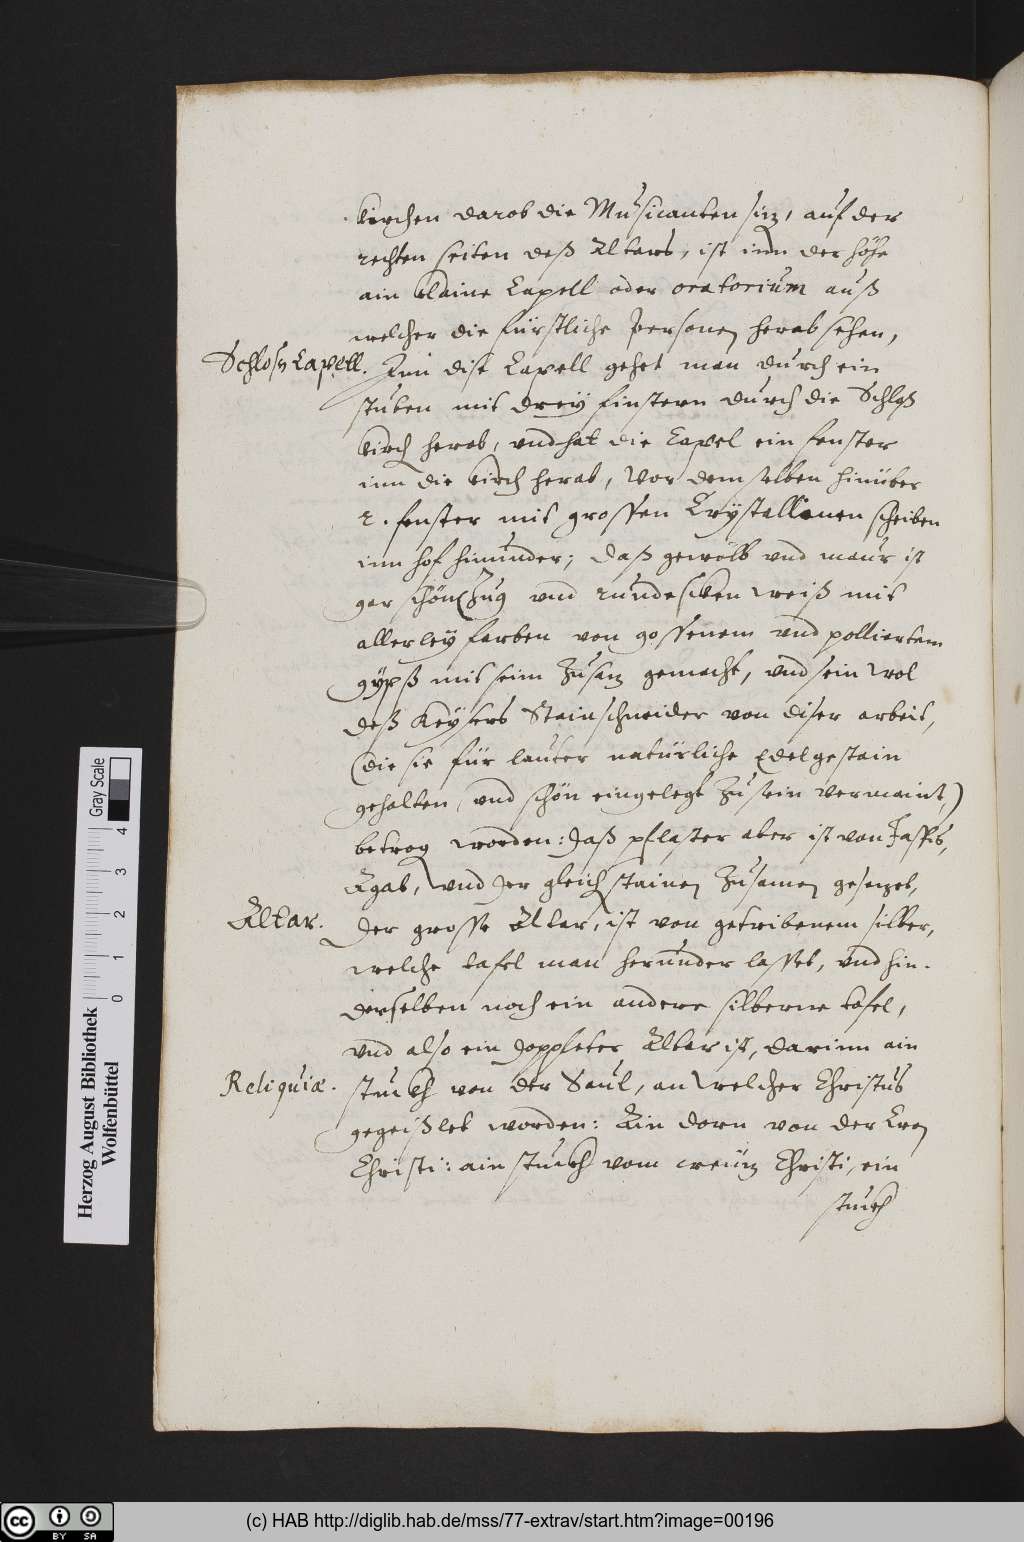 kirchen darob die Musicanten sizen, auf der
rechten seiten deß Altars, ist inn der höhe
ain klaine Capell oder oratorium auß
welcher die fürstliche Personen herab sehen,
Schloß Capell. Inn dise Capell gehet man durch ein
stuben mit drey finstern durch die Schloß
kirch herab, vnd hat die Capel ein fenster
inn die kirch herab, Vor demselben hinüber
2. fenster mit grossen Crystallinen scheiben
inn hof hinunder; daß gewölb vnd maur ist
gar schön Zug vnd rundeschen weiß mit
allerley farben von gossenem vnd polliertem
gÿpß mit seim Zusaz gemacht, vnd sein wol
deß Keysers Stainschneider von diser arbeit,
(die sie für lauter natürliche Edelgestain
gehalten, vnd schön eingelegt Zusein vermaint,)
betrog worden: daß pflaster aber ist von Jaspis,
Agat, vnd der gleich stainen Zusamen gesezet,
Altar. Der grosse Altar, ist von getribenem silber,
welche tafel man herunder lasset, vnd hin-
derselben noch ein andere silberne tafel,
vnd also ein doppleter Altar ist, darinn ain
Reliquiæ. stuckh von der Saul, an welcher Christus
gegeißlet worden: Ain dorn von der Cron
Christi: ain stuckh vom creüz Christi, ein
stuckh
Herzog August Bibliothek
Wolfenbüttel
0 1 2 3 4
Gray Scale
BY SA
(c) HAB http://diglib.hab.de/mss/77-extrav/start.htm?image=00196